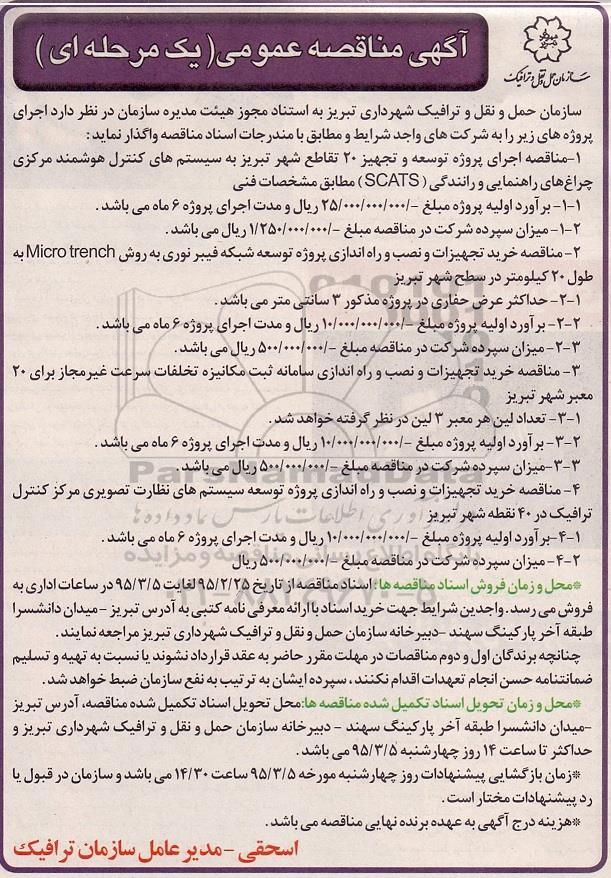 آگهی مناقصه عمومی(یک مرحله ای)
سازمان حمل و نقل و ترافیک
سازمان حمل و نقل و ترافیک شهرداری تبریز به استناد مجوز هیئت مدیره سازمان در نظر دارد اجرای
پروژه های زیر را به شرکت های واجد شرایط و مطابق با مندرجات اسناد مناقصه واگذار نماید:
۱-مناقصه اجرای پروژه توسعه و تجهیز ۲۰ تقاطع شهر تبریز به سیستم های کنترل هوشمند مرکزی
چراغ‌های راهنمایی و رانندگی (SCATS) مطابق مشخصات فنی
۱-۱- برآورد اولیه پروژه مبلغ -/۲۵/۰۰۰/۰۰۰/۰۰۰ ریال و مدت اجرای پروژه ۶ ماه می باشد .
۱-۲- میزان سپرده شرکت در مناقصه مبلغ -/۱/۲۵۰/۰۰۰/۰۰۰ ریال می باشد .
۲- مناقصه خرید تجهیزات و نصب و راه اندازی پروژه توسعه شبکه فیبر نوری به روش Micro trench به
طول ۲۰ کیلومتر در سطح شهر تبریز
۲-۱- حداکثر عرض حفاری در پروژه مذکور ۳ سانتی متر می باشد .
۲-۲- برآورد اولیه پروژه مبلغ -/۱۰/۰۰۰/۰۰۰/۰۰۰ ریال و مدت اجرای پروژه ۶ ماه می باشد .
۲-۳- میزان سپرده شرکت در مناقصه مبلغ -/۵۰۰/۰۰۰/۰۰۰ ریال می باشد .
۳- مناقصه خرید تجهیزات و نصب و راه اندازی سامانه ثبت مکانیزه تخلفات سرعت غیرمجاز برای ۲۰
معبر شهر تبریز
۳-۱- تعداد لین هر معبر ۳ لین در نظر گرفته خواهد شد .
۳-۲- برآورد اولیه پروژه مبلغ -/۱۰/۰۰۰/۰۰۰/۰۰۰ ریال و مدت اجرای پروژه ۶ ماه می باشد .
۳-۳-میزان سپرده شرکت در مناقصه مبلغ -/۵۰۰/۰۰۰/۰۰۰ ریال می باشد .
۴- مناقصه خرید تجهیزات و نصب و راه اندازی پروژه توسعه سیستم های نظارت تصویری مرکز کنترل
ترافیک در ۴۰ نقطه شهر تبریز
۴-۱-برآورد اولیه پروژه مبلغ -/۱۰/۰۰۰/۰۰۰/۰۰۰ ریال و مدت اجرای پروژه ۶ ماه می باشد .
۴-۲- میزان سپرده شرکت در مناقصه مبلغ -/۵۰۰/۰۰۰/۰۰۰ ریال
*محل و زمان فروش اسناد مناقصه ها: اسناد مناقصه از تاریخ ۹۵/۲/۲۵ لغایت ۹۵/۳/۵ در ساعات اداری به
فروش می رسد . واجدین شرایط جهت خرید اسناد با ارائه معرفی نامه کتبی به آدرس تبریز - میدان دانشسرا
طبقه آخر پارکینگ سهند -دبیرخانه سازمان حمل و نقل و ترافیک شهرداری تبریز مراجعه نمایند.
چنانچه برندگان اول و دوم مناقصات در مهلت مقرر حاضر به عقد قرارداد نشوند یا نسبت به تهیه و تسلیم
ضمانتنامه حسن انجام تعهدات اقدام نکنند ، سپرده ایشان به ترتیب به نفع سازمان ضبط خواهد شد.
*محل و زمان تحویل اسناد تکمیل شده مناقصه ها:محل تحویل اسناد تکمیل شده مناقصه، آدرس تبریز
-میدان دانشسرا طبقه آخر پارکینگ سهند - دبیرخانه سازمان حمل و نقل و ترافیک شهرداری تبریز و
حداکثر تا ساعت ۱۴ روز چهارشنبه ۹۵/۳/۵ می باشد .
*زمان بازگشایی پیشنهادات روز چهارشنبه مورخه ۹۵/۳/۵ ساعت ۱۴/۳۰ می باشد و سازمان در قبول یا
رد پیشنهادات مختار است .
*هزینه درج آگهی به عهده برنده نهایی مناقصه می باشد .
اسحقی - مدیر عامل سازمان ترافیک
ParsNamadData
پایگاه اطلاع رسانی مناقصه و مزایده